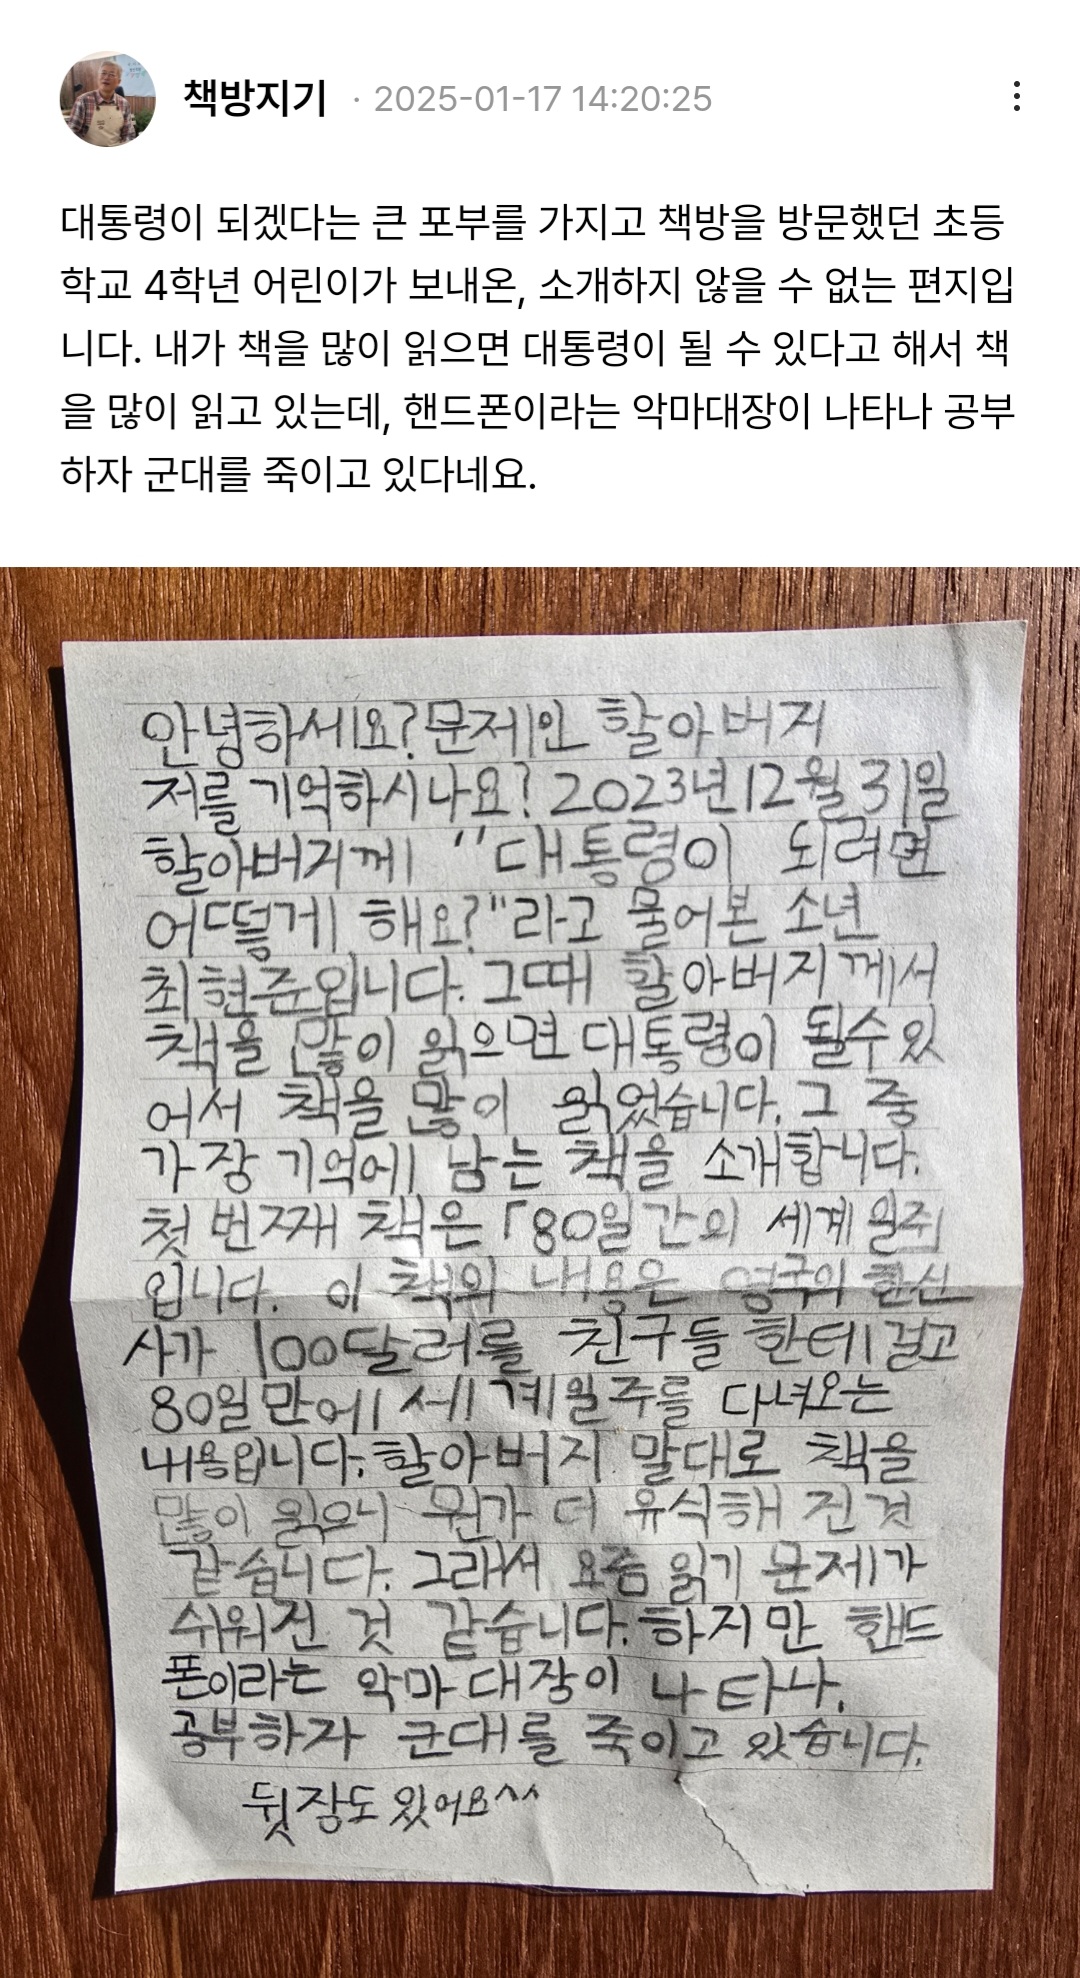 책방지기 · 2025-01-17 14:20:25
대통령이 되겠다는 큰 포부를 가지고 책방을 방문했던 초등
학교 4학년 어린이가 보내온, 소개하지 않을 수 없는 편지입
니다. 내가 책을 많이 읽으면 대통령이 될 수 있다고 해서 책
을 많이 읽고 있는데, 핸드폰이라는 악마대장이 나타나 공부
하자 군대를 죽이고 있다네요.
안녕하세요? 문제인 할아버지
저를 기억하시나요? 2023년 12월 31일
할아버지께 "대통령이 되려면
어떻게 해요?"라고 물어본 소년
최현준입니다. 그때 할아버지께서
책을 많이 읽으면 대통령이 될수 있
어서 책을 많이 읽었습니다. 그 중
가장 기억에 남는 책을 소개합니다.
첫 번째 책은 「80일 간의 세계 일주」
입니다. 이 책의 내용은 영국의 한신
사가 100달러를 친구들 한테 걸고
80일만에 세계일주를 다녀오는
내용입니다. 할아버지 말대로 책을
많이 읽으니 뭔가 더 유식해 진 것
같습니다. 그래서 요즘 읽기 문제가
쉬워진 것 같습니다. 하지만 핸드
폰이라는 악마 대장이 나타나,
공부하자 군대를 죽이고 있습니다.
뒷장도 있어요^^